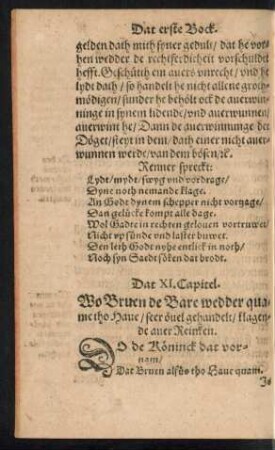 Dat erste Bock.
gelden dath mith syner gedult/ dat he vor-
hen wedder de rechtferdicheit vorschuldet
hefft. Geschüth em auers vnrecht/ vnd he
lydt dath/ so handelt he nicht allene groth-
mödigen/ sunder he beholt ock de auerwin-
ninge in synem lidende/ vnd auerwunnen/
auerwint he/ Dann de auerwinnunge der
Döget/ steyt in dem/ dath einer nicht auer-
wunnen werde/ van dem bösen/ ꝛc.
Renner spreckt:
Lydt/ mydt/ swyg vnd vordrage/
Dyne noth nemande klage.
An Godt dynem schepper nicht vorzage/
Dan gelücke kompt alle dage.
Wol Gadte in rechten gelouen vortruwet/
Nicht vp sünde vnd laster buwet.
Den leth Godt nyhe entlick in noth/
Noch syn Saedt söken dat brodt.
Dat XI. Capitel.
Wo Bruen de Bare wedder qua-
me tho Haue/ seer öuel gehandelt/ klagen-
de auer Reinken.
DO de Köninck dat vor-
nam/
Dat Bruen alsüs tho Haue quam.